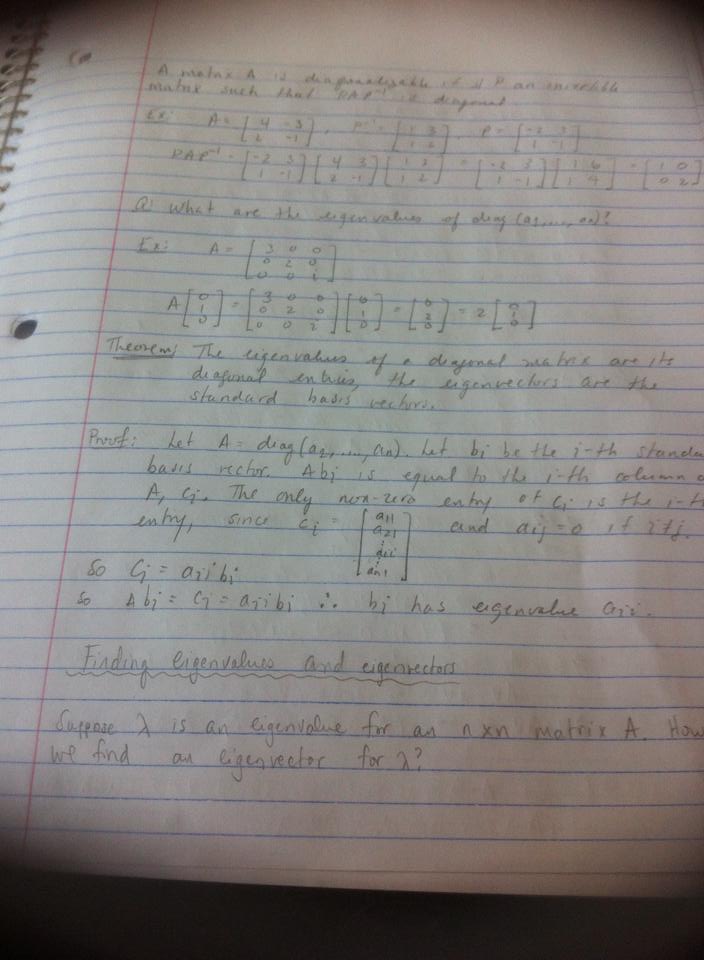 A matrix A is diagonalizable if ∃ P an invertible
matrix such that PAP⁻¹ is diagonal
Ex: A = [4 -3; 2 -1], P⁻¹ = [1 3; 1 2], P = [-2 3; 1 -1]
PAP⁻¹ = [-2 3; 1 -1] [4 3; 2 -1] [1 3; 1 2] = [-2 3; 1 -1] [1 6; 1 4] = [1 0; 0 2]
Q: What are the eigenvalues of diag (a₁,..., aₙ)?
Ex: A = [3 0 0; 0 2 0; 0 0 1]
A [0; 1; 0] = [3 0 0; 0 2 0; 0 0 2] [0; 1; 0] = [0; 2; 0] = 2 [0; 1; 0]
Theorem: The eigenvalues of a diagonal matrix are its
diagonal entries, the eigenvectors are the
standard basis vectors.
Proof: Let A = diag(a₂,...., aₙ). Let bi be the i-th standa
basis vector. Abi is equal to the i-th column o
A, Ci. The only non-zero entry of Ci is the i-th
entry, since Ci = [a₁₁; a₂₁; ⋮; aii; ⋮; an1] and aij = 0 if i≠j.
So Ci = aii bi
So Abi = Ci = aii bi ∴ bi has eigenvalue aii.
Finding eigenvalues and eigenvectors
Suppose λ is an eigenvalue for an n×n matrix A. How
we find an eigenvector for λ?